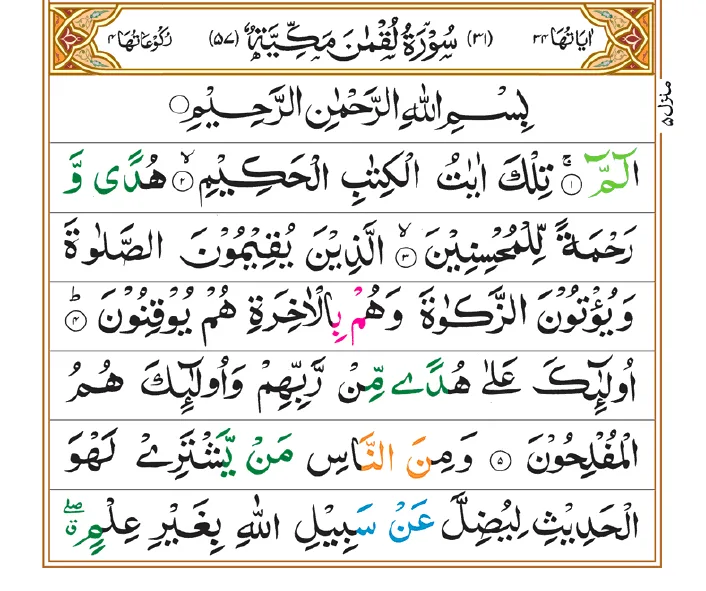 اٰيَاتُهَا ٣٤ (٣١) سُوْرَةُ لُقْمٰنَ مَكِّيَّةٌ (٥٧) رُكُوْعَاتُهَا ٤
منزل ٥
بِسْمِ اللّٰهِ الرَّحْمٰنِ الرَّحِيْمِ
الٓمّٓ ۚ‏ ١ تِلْكَ اٰيٰتُ الْكِتٰبِ الْحَكِيْمِ ۙ‏ ٢ هُدًى وَّ
رَحْمَةً لِّلْمُحْسِنِيْنَ ۙ‏ ٣ الَّذِيْنَ يُقِيْمُوْنَ الصَّلٰوةَ
وَيُؤْتُوْنَ الزَّكٰوةَ وَهُمْ بِالْاٰخِرَةِ هُمْ يُوْقِنُوْنَ ؕ‏ ٤
اُولٰٓئِكَ عَلٰى هُدًى مِّنْ رَّبِّهِمْ وَاُولٰٓئِكَ هُمُ
الْمُفْلِحُوْنَ ٥ وَمِنَ النَّاسِ مَنْ يَّشْتَرِىْ لَهْوَ
الْحَدِيْثِ لِيُضِلَّ عَنْ سَبِيْلِ اللّٰهِ بِغَيْرِ عِلْمٍ ۖق